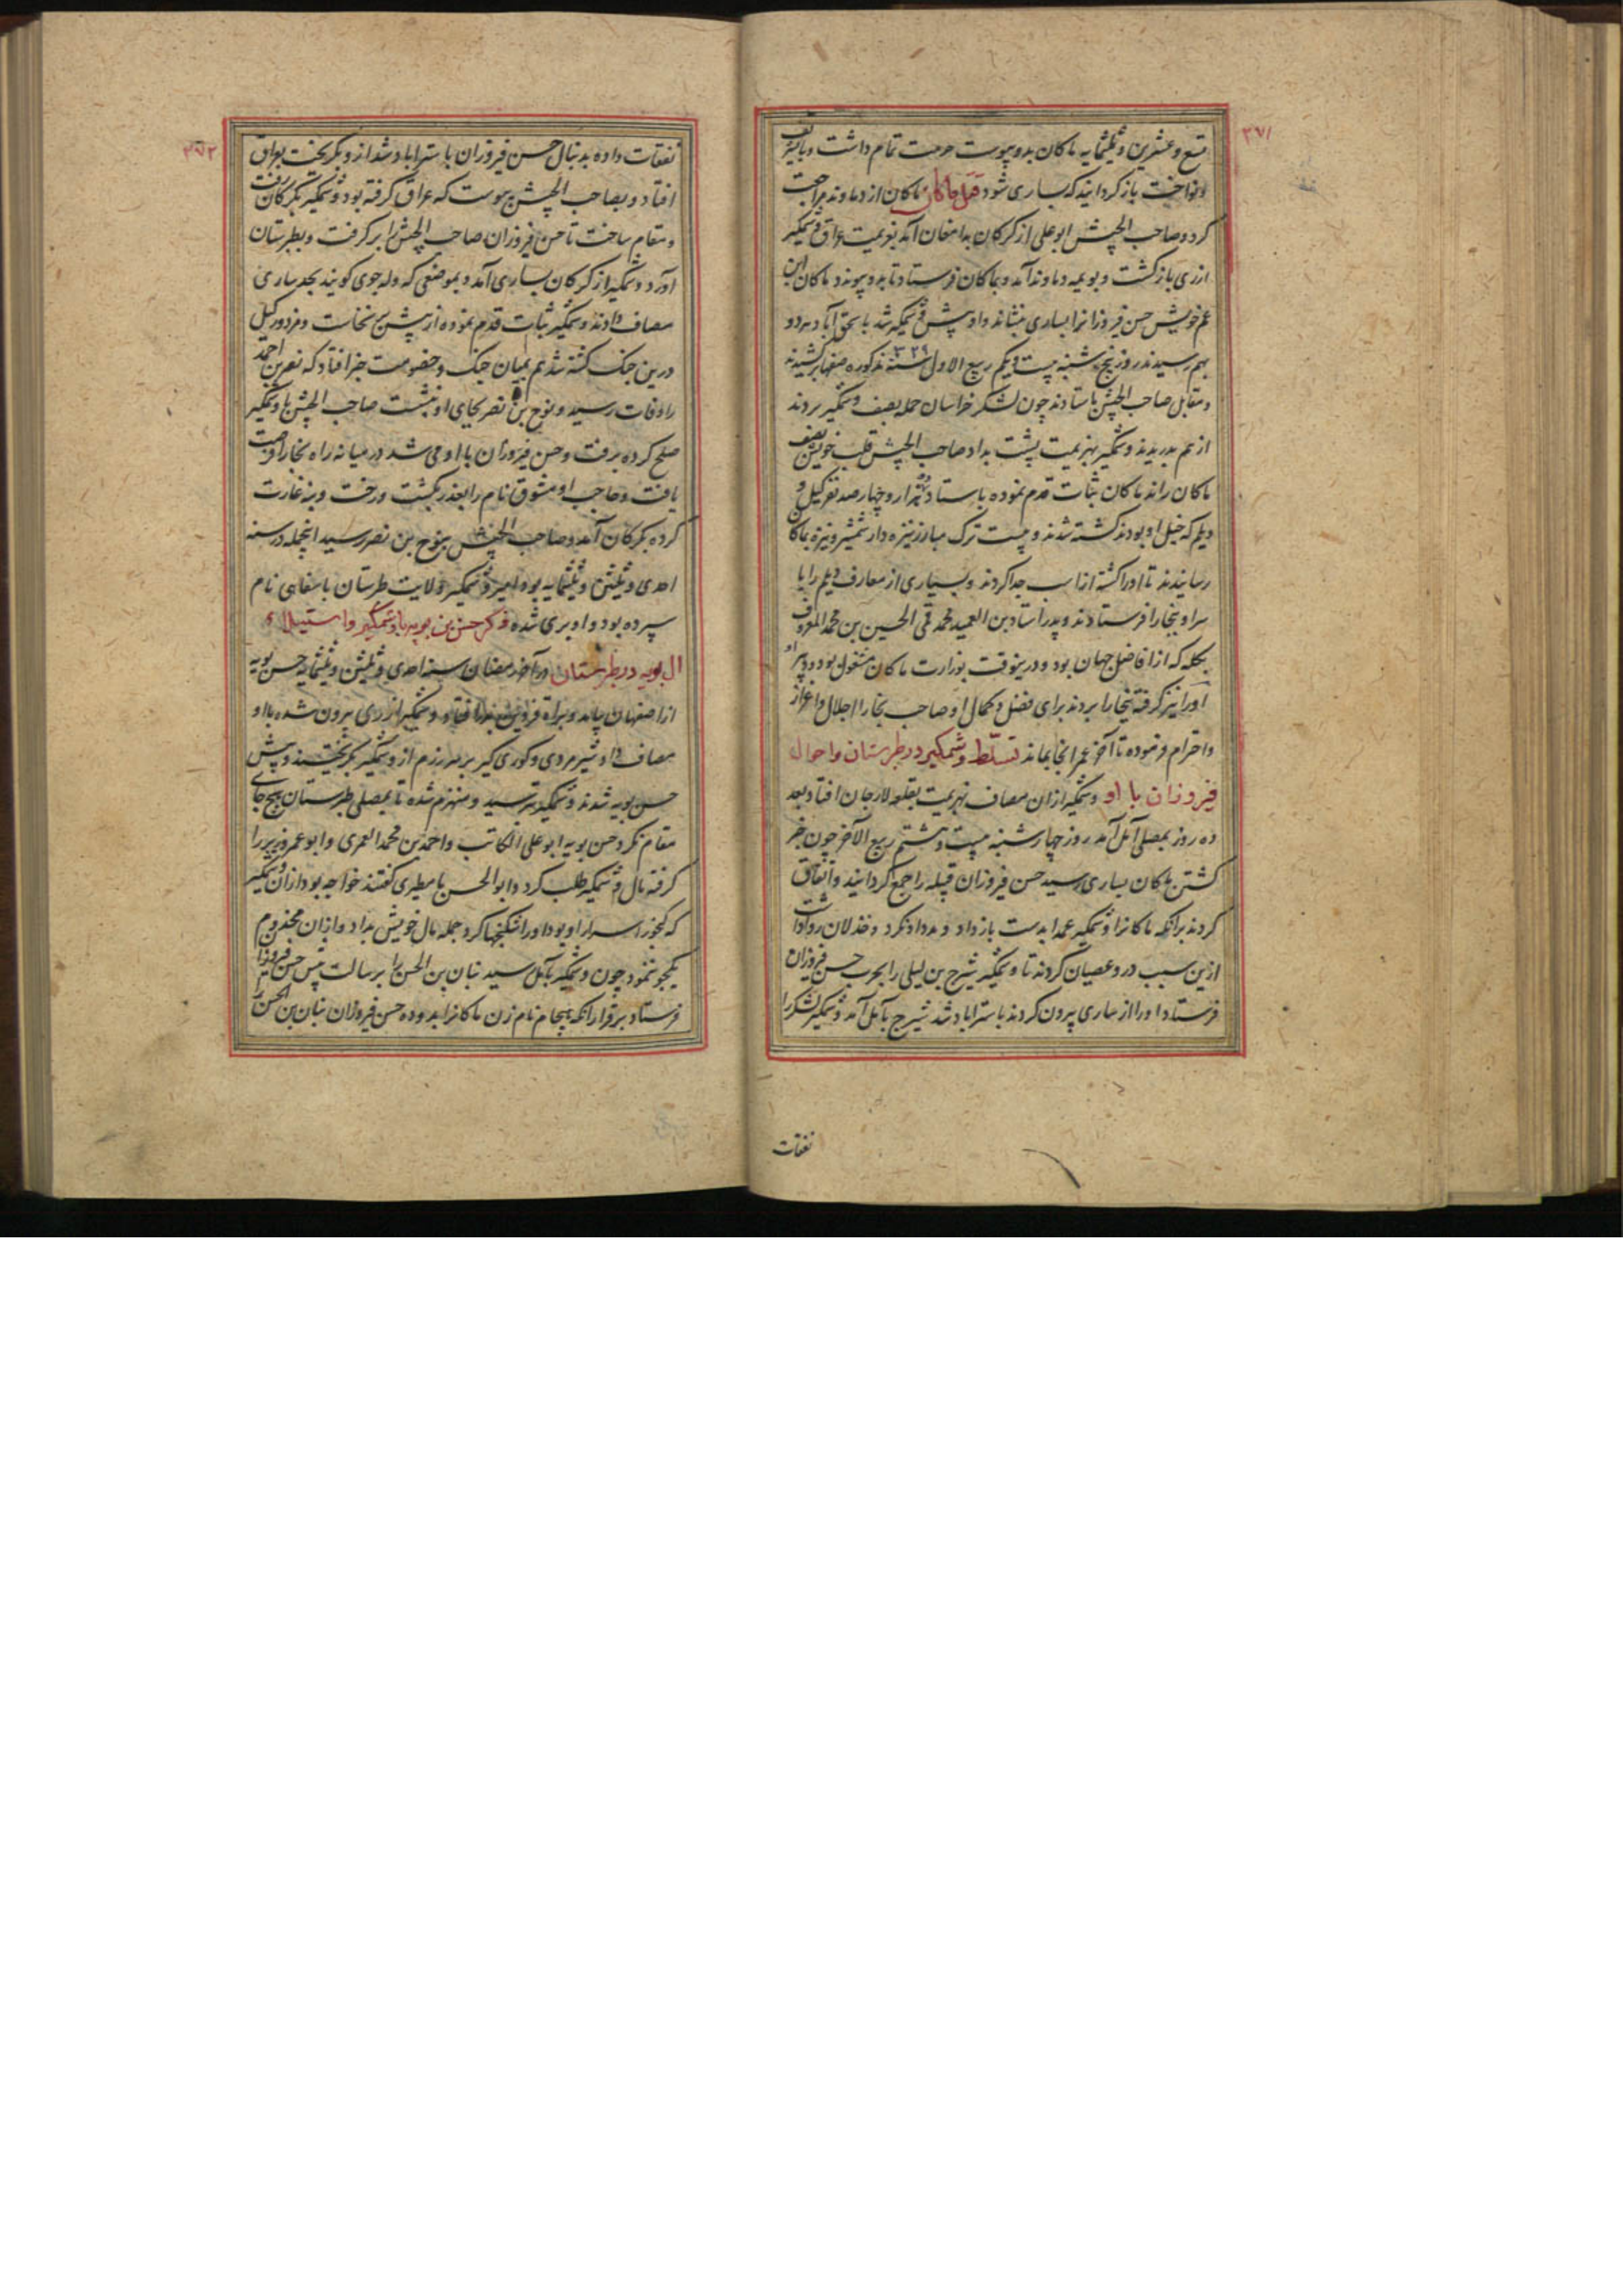 ۳۷۱
تسع و عشرین و ثلثمایه ماکان بدو پیوست حرمت تمام داشت و با
و نواخت باز گردانید که بساری شود قتل ماکان ماکان از دماوند مراجعت
کرد و صاحب الجیش ابو علی از کرکان بدامغان آمد بعزیمت عراق وشمکیر
از ری باز کشت و بویمه دماوند آمد و بماکان فرستاد تا بدو پیوندد ماکان ابن
عم خویش حسن فیروزانرا بساری بنشاند و او پیش وشمکیر شد باسحق آباد هر دو
بهم رسیدند روز پنجشنبه بیست و یکم ربیع الاول سنه ۳۲۹ مذکوره صفها برکشیدند
و مقابل صاحب الجیش باستادند چون لشکر خراسان حمله بصف وشمکیر بردند
از هم بدریدند وشمکیر بهزیمت پشت بداد صاحب الجیش قلب خویش بصف
ماکان راند ماکان ثبات قدم نموده باستاد هزار و چهار صد نفر کیل و
دیلم که خیل او بودند کشته شدند و بیست ترک مبارز نیزه دار شمشیر و نیزه بماکان
رسانیدند تا او را کشته از اسب جدا کردند و بسیاری از معارف دیلم را با
سر او ببخارا فرستادند و پدر استاد بن العمید محمد قمی الحسین بن محمد المعروف
بکله که از افاضل جهان بود و درینوقت بوزارت ماکان مشغول بود و پسر او
او را نیز کرفته ببخارا بردند برای فضل و کمال او صاحب بخارا اجلال و اعزاز
و احترام فرموده تا آخر عمر انجا بماند تسلط وشمکیر در طبرستان و احوال
فیروزان با او وشمکیر ازان مصاف بهزیمت بقلعه لارجان افتاد بعد
ده روز بمصلی آمل آمد روز چهار شنبه بیست و هشتم ربیع الآخر چون خبر
کشتن ماکان بساری رسید حسن فیروزان قبیله را جمع کردانید و اتفاق
کردند برانکه ماکانرا وشمکیر عمدا بدست باز داد و مدد او نکرد و خذلان روا داشت
ازین سبب درو عصیان کردند تا وشمکیر شیرج بن لیلی را بحرب حسن فیروزان
فرستاد او را از ساری بیرون کردند باستراباد شد شیرج بآمل آمد وشمکیر لشکر را
نفقات
۳۷۲
نفقات داده بدنبال حسن فیروزان باستراباد شد ازو بکریخت بعراق
افتاد و بصاحب الجیش پیوست که عراق کرفته بود وشمکیر بکرکان رفت
و مقام ساخت تا حسن فیروزان صاحب الجیش را بر کرفت و بطبرستان
آورد وشمکیر از کرکان بساری آمد و بموضعی که وله جوی کویند بحد ساری
مصاف دادند وشمکیر ثبات قدم نموده از پیش بر نخاست و مزدور کیل
درین جنک کشته شد هم بمیان جنک و خصومت خبر افتاد که نصر بن احمد
را وفات رسید و نوح بن نصر بجای او نشست صاحب الجیش با وشمکیر
صلح کرده برفت و حسن فیروزان با او می شد در میانه راه بخارا فرصت
یافت و حاجب او مشوق نام را بغدر بکشت و رخت و بنه غارت
کرده بکرکان آمد و صاحب الجیش بنوح بن نصر رسید اینجمله در سنه
احدی و ثلثین و ثلثمایه بود امیر وشمکیر ولایت طبرستان باسفاهی نام
سپرده بود و او بری شده ذکر حسن بن بویه با وشمکیر و استیلاء
ال بویه در طبرستان در آخر رمضان سنه احدی و ثلثین و ثلثمایه حسن بویه
از اصفهان بیامد و براه قزوین افتاد و وشمکیر از ری بیرون شده با او
مصاف داد شیر مردی و کوری کیر بر سر رزم از وشمکیر بکریختند و پیش
حسن بویه شدند وشمکیر بترسید و منهزم شده تا بمصلی طبرستان بهیچ جای
مقام نکرد حسن بویه ابو علی الکاتب و احمد بن محمد العمری و ابو عمرو وزیر را
کرفته مال وشمکیر طلب کرد و ابو الحسن مامطیری کفتند خواجه بود ازان وشمکیر
که کنجور اسرار او بود او را شکنجها کرد جمله مال خویش بداد و ازان مخدوم
یکجو ننمود چون وشمکیر بآمل رسید بنان بن الحسن را برسالت پیش حسن فیروزان
فرستاد بر قرار آنکه نام زن ماکانرا بدو ده حسن فیروزان بنان بن الحسن را